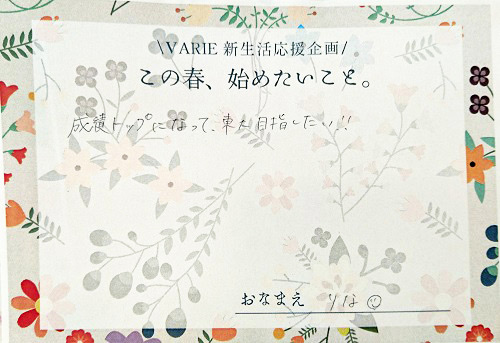 \VARIE 新生活応援企画/
この春、始めたいこと。
成績トップになって、東大目指したい!!
おなまえ りな☺